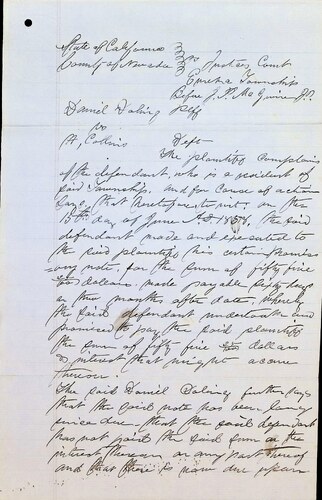 State of California } In Justices Court
County of Nevada } Eureka Township
Before J. P. McGuire J.P.
Daniel Dobney Plff
vs
H, Collins Deft
The plaintiff complains
of the defendant, who is a resident of
said Township, and for cause of action
says, that heretofore to wit, on the
15th day of June A.D 1858, the said
defendant made and executed to
the said plaintiff his certain promis-
sory note, for the sum of fifty five
dollars made payable sixty days
or two months, after date, whereby
the said defendant undertook and
promised to pay the said plaintiff
the sum of fifty five dollars
& interest that might accrue
thereon.
The said Daniel further says
that the said note has been long
since due that the said defendant
has not paid the said sum or the
interest thereon or any part thereof
and that there is now due upon